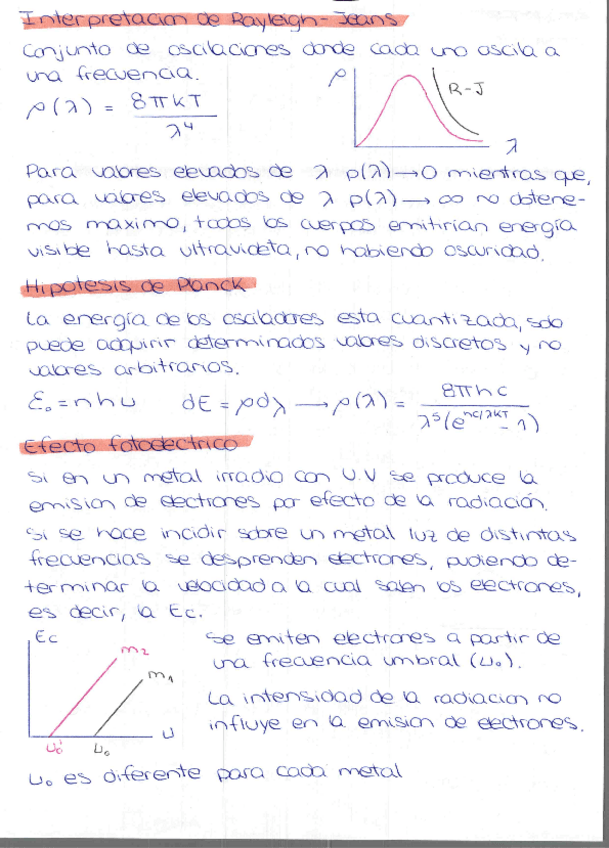 Interpretacion de Rayleigh-Jeans
Conjunto de oscilaciones donde cada uno oscila a
una frecuencia.
ρ(λ) = 8πkT / λ⁴
ρ
R-J
λ
Para valores elevados de λ ρ(λ)→0 mientras que,
para valores elevados de λ ρ(λ)→∞ no obtene-
mos maximo, todos los cuerpos emitirian energía
visible hasta ultravioleta, no habiendo oscuridad.
Hipotesis de Planck
La energía de los osciladores esta cuantizada, solo
puede adquirir determinados valores discretos y no
valores arbitrarios.
Ɛ₀ = nhν dE = ρdλ → ρ(λ) = 8πhc / λ⁵(e^(hc/λKT) - 1)
Efecto fotoelectrico
Si en un metal irradio con U.V se produce la
emision de electrones por efecto de la radiación.
Si se hace incidir sobre un metal luz de distintas
frecuencias se desprenden electrones, pudiendo de-
terminar la velocidad a la cual salen los electrones,
es decir, la Ec.
Ec
m₂
m₁
ν
ν₀' ν₀
Se emiten electrones a partir de
una frecuencia umbral (ν₀).
La intensidad de la radiacion no
influye en la emision de electrones.
ν₀ es diferente para cada metal